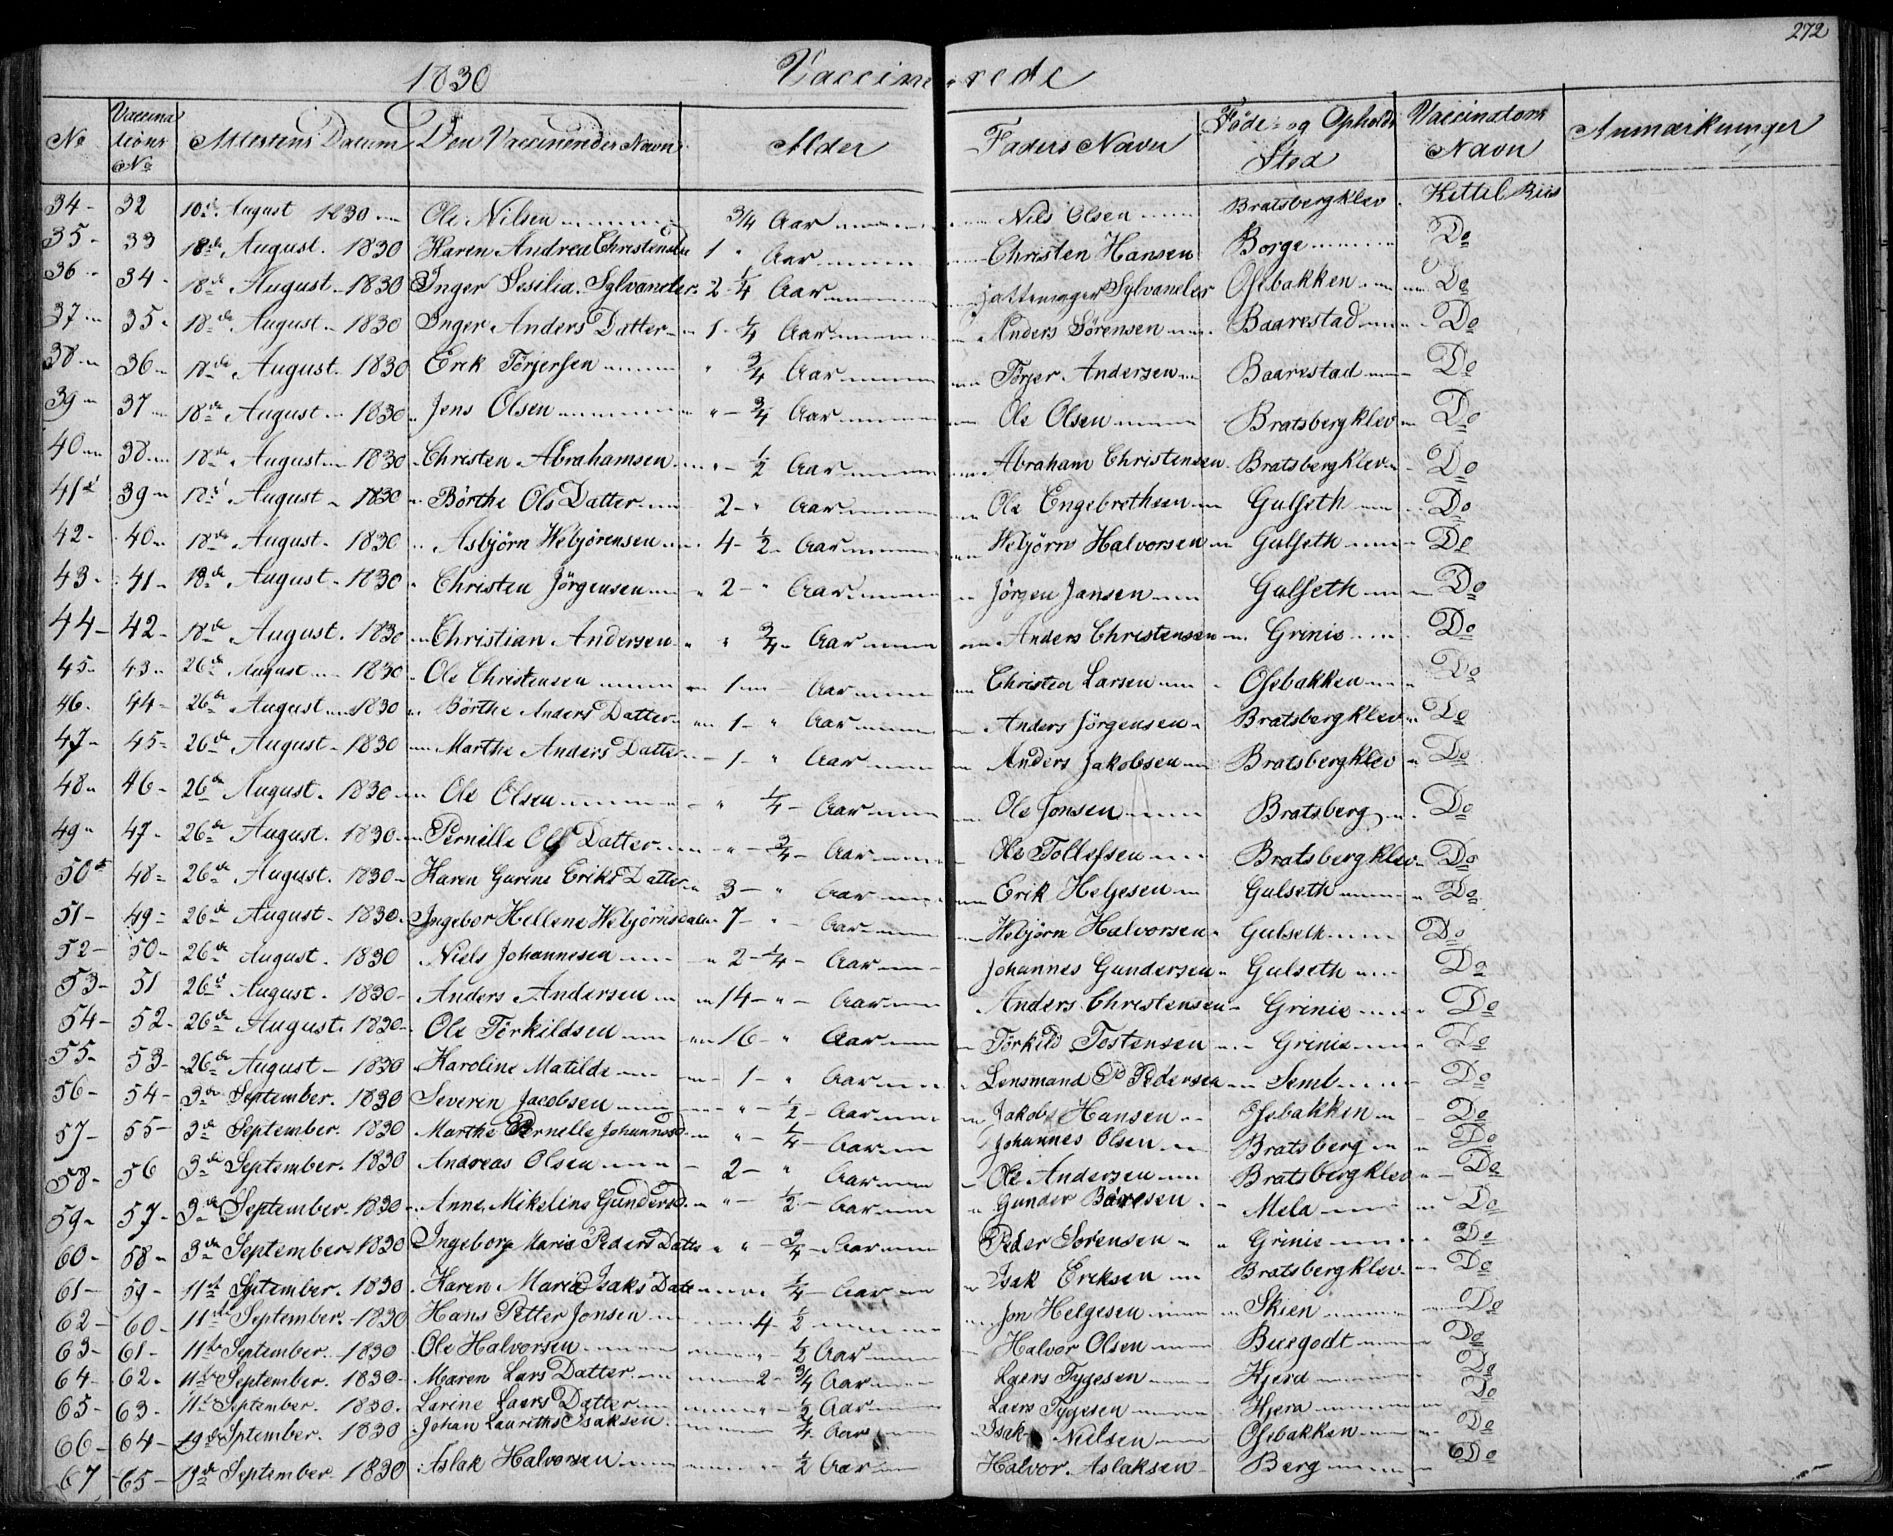 272
1830 Vaccinerede
No Vaccinations No Attestens Datum Den Vaccineredes Navn Alder Faders Navn Føde- og Opholds Sted Vaccinators Navn Anmærkninger
34 - 32 10de August 1830 Ole Nilsen 3/4 Aar Nils Olsen Bratsbergklev Kittil Riis
35 - 33 18de August. 1830 Karen Andrea Christensdr 1 " Aar Christen Hansen Borge Do
36 - 34 - 18de August - 1830 Inger Sesilia Sylvaneler 2 - 1/4 Aar Sylvaneler Osebakken Do
37 - 35 - 18de August - 1830 Inger Anders Datter 1 - 1/4 Aar Anders Sørensen Baarestad Do
38 - 36 - 18de August - 1830 Erik Törjersen " 3/4 Aar Törjer Andersen Baarestad Do
39 - 37 - 18de August - 1830 Jens Olsen " - 3/4 Aar Ole Olsen Bratsbergklev Do
40 - 38 - 18de August - 1830 Christen Abrahamsen " - 1/2 Aar Abraham Christensen Bratsbergklev Do
41 - 39 - 18de August - 1830 Börthe Ols Datter 2 - " Aar Ole Engebrethsen Gulseth Do
42 - 40 - 18de August - 1830 Asbjörn Webjörensen 4 - 1/2 - Aar Webjörn Halvorsen Gulseth Do
43 - 41 - 18de August - 1830 Christen Jörgensen 2 - " Aar Jörgen Jansen Gulseth Do
44 - 42 - 18de August. 1830 Christian Andersen " 3/4 - Aar Anders Christensen Grinie Do
45 - 43 - 26de August 1830 Ole Christensen 1 Aar Christen Larsen Osebakken Do
46 - 44 - 26de August 1830 Börthe Anders Datter 1 - " Aar Anders Jörgensen Bratsbergklev Do
47 - 45 - 26de August - 1830 Marthe Anders Datter 1 - " Aar Anders Jakobsen Bratsbergklev Do
48 - 46 - 26de August - 1830 Ole Olsen " 1/4 - Aar Ole Jonsen Bratsberg Do
49 - 47 - 26de August. 1830 Pernille Ols Datter " - 3/4 - Aar Ole Tollefsen Bratsbergklev Do
50 - 48 - 26de August. 1830 Karen Gurine Eriks Datter 3 - " Aar Erik Helgesen Gulseth Do
51 - 49 - 26de August - 1830 Ingebor Hellene Webjörnsdatter 7 - " - Aar Webjörn Halvorsen Gulseth Do
52 - 50 - 26de August. 1830 Niels Johannesen 2 - 1/4 - Aar Johannes Gundersen Gulseth Do
53 - 51 26de August - 1830 Anders Andersen 14 - " - Aar Anders Christensen Grinie Do
54 - 52 - 26de August. 1830 Ole Törkildsen 16 - " Aar Törkild Tostensen Grinie Do
55 - 53 - 26de August - 1830 Karoline Matilde 1 - " Aar Lensmand P Pedersen Semb Do
56 - 54 - 3de September. 1830 Severin Jacobsen " - 1/2 - Aar Jakob Hansen Osebakken Do
57 - 55 - 3de September. 1830 Marthe Pernelle Johannesd. " - 1/4 - Aar Johannes Olsen Bratsberg Do
58 - 56 3de September. 1830 Andreas Olsen 2 - " Aar Ole Andersen Bratsbergklev Do
59 - 57 - 3de September. 1830 Anne Mikeline Gundersd. " - 1/2 - Aar Gunder Mela Do
60 - 58 - 3de September. 1830 Ingeborg Marie Peders Datter " - 3/4 - Aar Peder Sörensen Grinie Do
61 - 59 - 11te September. 1830 Karen Maria Isaks Datter 1/4 - Aar Isak Eriksen Bratsbergklev Do
62 - 60 - 11te September. 1830 Hans Petter Jonsen 4 - 1/2 Jon Helgesen Skien Do
63 - 61 - 11te September. 1830 Ole Halvorsen " 1/2 Aar Halvor Olsen Burgodt Do
64 - 62 - 11te September. 1830 Maren Lars Datter 2 - 3/4 Aar Laers Tygesen Hjera Do
65 - 63 - 11te September. 1830 Larine Laers Datter " 1/2 Aar Laers Tygesen Hjera Do
66 - 64 - 19de September. 1830 Johan Laurithz Isaksen 1/4 Aar Isak Nielsen Osebakken Do
67 - 65 - 19de September. 1830 Aslak Halvorsen 1/2 Aar Halvor Aslaksen Berg Do